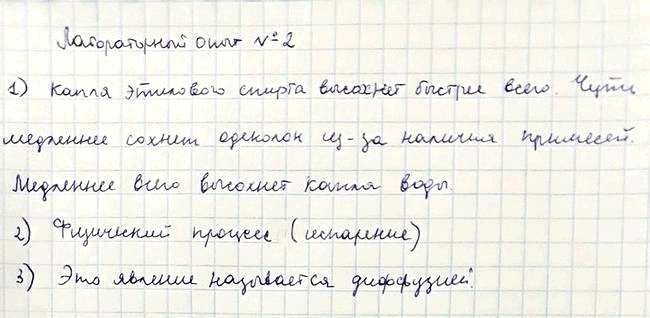 Лабораторный опыт №2
1) Капля этилового спирта высохнет быстрее всего. Чуть
медленнее сохнет одеколон из-за наличия примесей.
Медленнее всего высохнет капля воды.
2) Физический процесс (испарение)
3) Это явление называется диффузией.